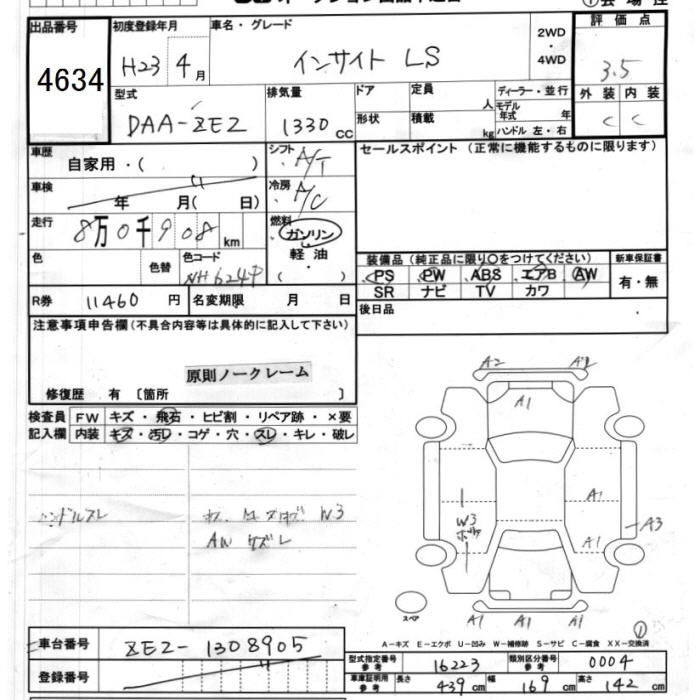 出品番号
4634
初度登録年月
H23 4月
車名・グレード
インサイト LS
2WD
・
4WD
評価点
3.5
外装 内装
C C
型式
DAA-ZE2
排気量
1330 CC
ドア
形状
定員
人
積載
kg
ディーラー・並行
モデル年式 年
ハンドル 左・右
車歴
自家用・( )
車検
年 月( 日)
走行
8万0千908 km
色
色替
色コード
NH624P
シフト
A/T
冷房
A/C
燃料
ガソリン
軽油
・
( )
セールスポイント (正常に機能するものに限ります)
装備品 (純正品に限り○をつけてください)
PS PW ABS エアB AW
SR ナビ TV カワ
新車保証書
有・無
R券 11460 円
名変期限 月 日
後日品
注意事項申告欄(不具合内容等は具体的に記入して下さい)
原則ノークレーム
修復歴 有 〔箇所 〕
検査員記入欄
FW キズ・飛石・ヒビ割・リペア跡・×要
内装 キズ・汚レ・コゲ・穴・スレ・キレ・破レ
ハンドルスレ
W3
AW
A2
A1
A1
W3
A1
A1
A3
スペア
A1
A1
A1
A-キズ E-エクボ U-凹み W-補修跡 S-サビ C-腐食 XX-交換済
①
車台番号
ZE2-1308905
登録番号
型式指定番号参考
16223
類別区分番号参考
0004
車庫証明用参考
長さ 439 cm
幅 169 cm
高さ 142 cm